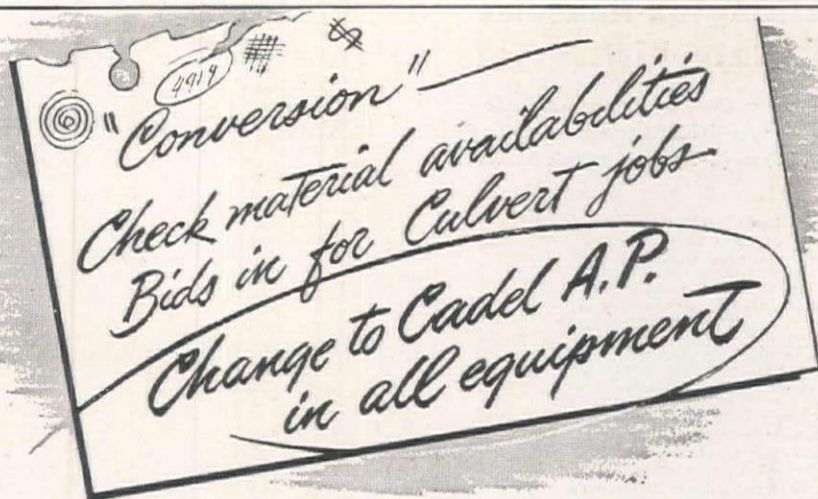 4919
"Conversion"
Check material availabilities
Bids in for Culvert jobs
Change to Cadel A.P.
in all equipment